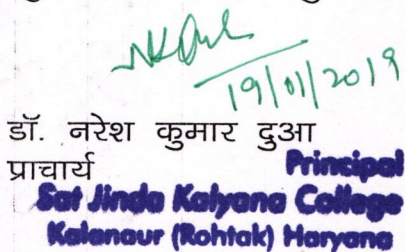 19/01/2019
डॉ. नरेश कुमार दुआ
प्राचार्य Principal
Sat Jinda Kalyana College
Kalanaur (Rohtak) Haryana